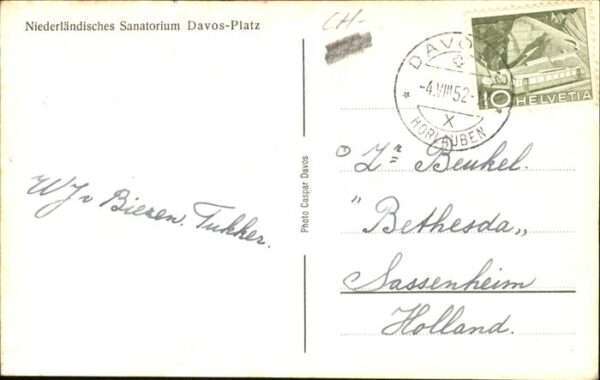 Niederländisches Sanatorium Davos-Platz
CH-
DAVOS
-4.VIII.52-
X
HORLAUBEN
10 HELVETIA
WJv Biezen. Tukker.
Photo Caspar Davos
Zr Beukel.
"Bethesda„
Sassenheim
Holland.